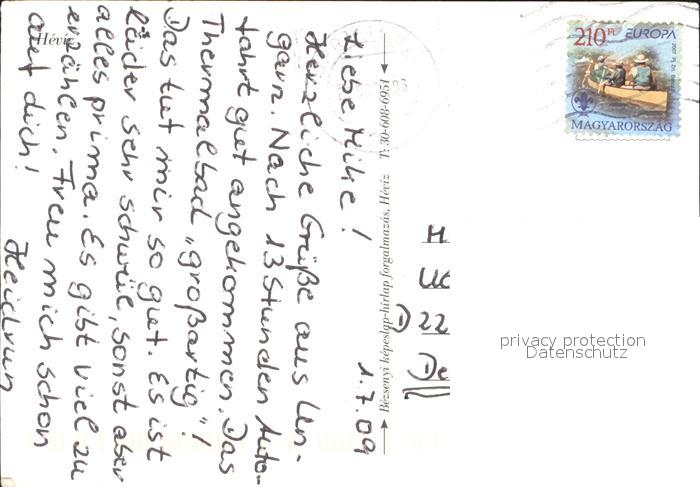 Hévíz
1.7.09
Liebe Hilke!
Herzliche Grüße aus Un-
garn. Nach 13 Stunden Auto-
fahrt gut angekommen. Das
Thermalbad „großartig"!
Das tut mir so gut. Es ist
leider sehr schwül, sonst aber
alles prima. Es gibt viel zu
erzählen. Freu mich schon
auf dich!
Heidrun
Bézsenyi képeslap-hírlap forgalmazás, Hévíz T: 30-608-6951
210 Ft EUROPA
MAGYARORSZÁG
H
D 22
privacy protection
Datenschutz